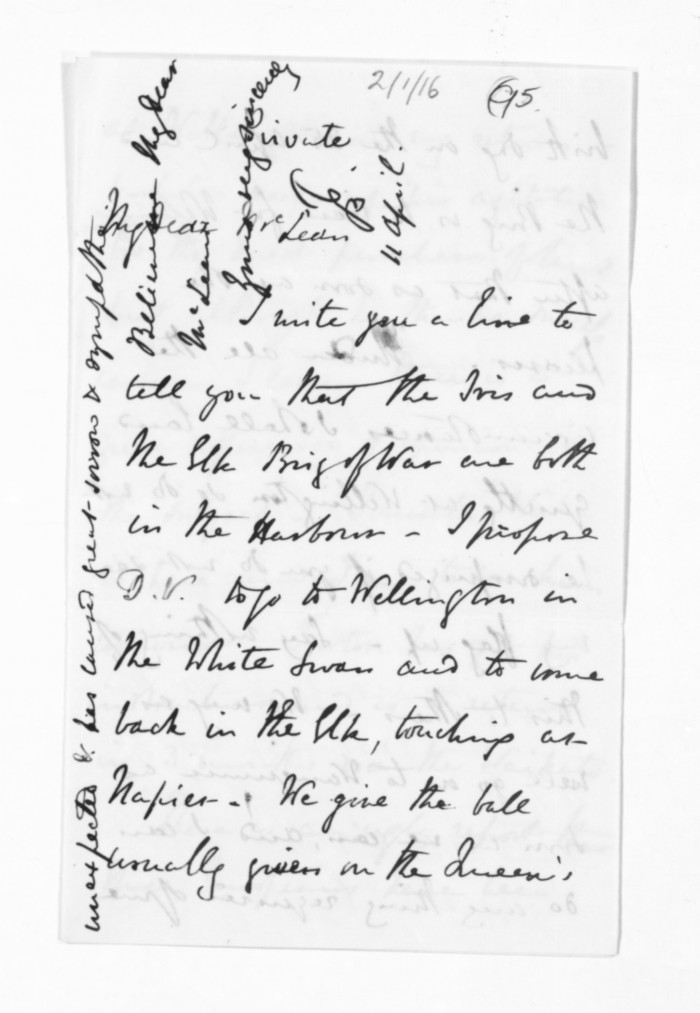 2/1/16
95
Private
My dear McLean
I write you a line to
tell you that the Iris and
the Elk Brig of War are both
in the Harbour - I propose
D.V. to go to Wellington in
the White Swan and to come
back in the Elk, touching at
Napier - We give the ball
usually given on the Queen's
unexpected & has caused great sorrow & sympathy
Believe me My dear
McLean
Yours very sincerely
11 April.